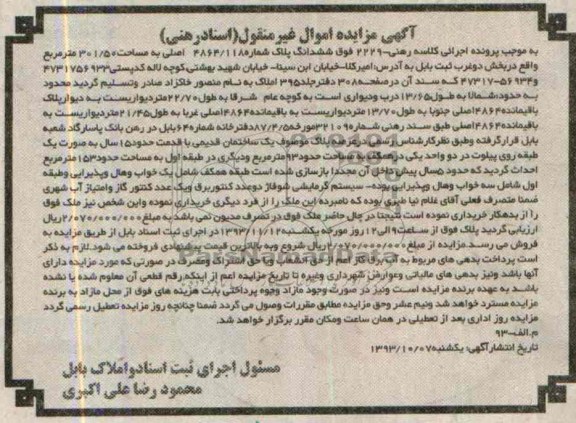 آگهی مزایده اموال غیر منقول(اسناد رهنی)
به موجب پرونده اجرائی کلاسه رهنی-۲۲۲۹ فوق ششدانگ پلاک شماره۴۸۶۴/۱۱۸ اصلی به مساحت۳۰۱/۵۰ مترمربع
واقع دربخش دوغرب ثبت بابل به آدرس:امیرکلا-خیابان ابن سینا- خیابان شهید بهشتی،کوچه لاله کدپستی۴۷۳۱۷۵۶۹۳۳
و۵۶۹۳۴-۴۷۳۱۷ که سند آن درصفحه۳۰۸ دفترجلد۳۹۵ املاک به نام منصور خاکزاد صادر وتسلیم گردید محدود
به حدود:شمالا به طول۱۳/۶۵درب ودیواری است به کوچه عام شرقا به طول۲۲/۷۰متردیواریست به دیوارپلاک
باقیمانده۴۸۶۴اصلی جنوبا به طول۱۳/۷۰متردیواریست به باقیمانده۴۸۶۴اصلی غربا به طول۲۱/۴۵متردیواریست به
باقیمانده۴۸۶۴اصلی طبق سند رهنی شماره۳۲۱۰۹مورخه۸۷/۴/۵دفترخانه شماره۶۴بابل در رهن بانک پاسارگاد شعبه
بابل قرارگرفته وطبق نظرکارشناس رسمی درعرصه پلاک موصوف یک ساختمان قدیمی با قدمت حدود۱۵سال به صورت یک
طبقه روی پیلوت در دو واحد یکی درهمکف به مساحت حدود۹۳مترمربع ودیگری در طبقه اول به مساحت حدود۱۵۳مترمربع
احداث گردیدکه حدود ۵سال پیش داخل آن مجددا بازسازی شده است طبقه همکف شامل یک خواب وهال وپذیرایی وطبقه
اول شامل سه خواب وهال وپذیرایی بوده- سیستم گرمایشی شوفاژ دوعدد کنتوربرق ویک عدد کنتور گاز وامتیاز آب شهری
ضمنا متصرف فعلی آقای غلام نیا شیری بوده که نامبرده این ملک را از فرد دیگری خریداری نموده واین شخص نیز ملک فوق
را از بدهکار خریداری نموده است نتیجتا در حال حاضر ملک فوق در تصرف مدیون نمی باشد به مبلغ۲/۰۷۰/۰۰۰/۰۰۰ریال
ارزیابی گردید پلاک فوق از ساعت۹الی۱۲روز مورخه یکشنبه۱۳۹۳/۱۱/۱۲در اجرای ثبت اسناد بابل از طریق مزایده به
فروش می رسد.مزایده از مبلغ۲/۰۷۰/۰۰۰/۰۰۰ریال شروع وبه بالاترین قیمت پیشنهادی فروخته می شود.لازم به ذکر
است پرداخت بدهی های مربوط به آب،برق،گاز اعم از حق انشعاب ویا حق اشتراک ومصرف در صورتی که مورد مزایده دارای
آنها باشد ونیز بدهی های مالیاتی وعوارض شهرداری وغیره تا تاریخ مزایده اعم از اینکه رقم قطعی آن معلوم شده یا نشده
باشد به عهده برنده مزایده است ونیز در صورت وجود مازاد وجوه پرداختی بابت هزینه های فوق از محل مازاد به برنده
مزایده مسترد خواهد شد ونیم عشر وحق مزایده مطابق مقررات وصول می گردد ضمنا چنانچه روز مزایده تعطیل رسمی گردد
مزایده روز اداری بعد از تعطیلی در همان ساعت ومکان مقرر برگزار خواهد شد.
م.الف-۹۳
تاریخ انتشارآگهی: یکشنبه۱۳۹۳/۱۰/۰۷
مسئول اجرای ثبت اسنادواملاک بابل
محمود رضا علی اکبری